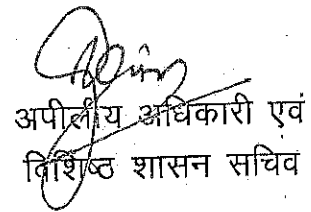 अपीलीय अधिकारी एवं
विशिष्ठ शासन सचिव